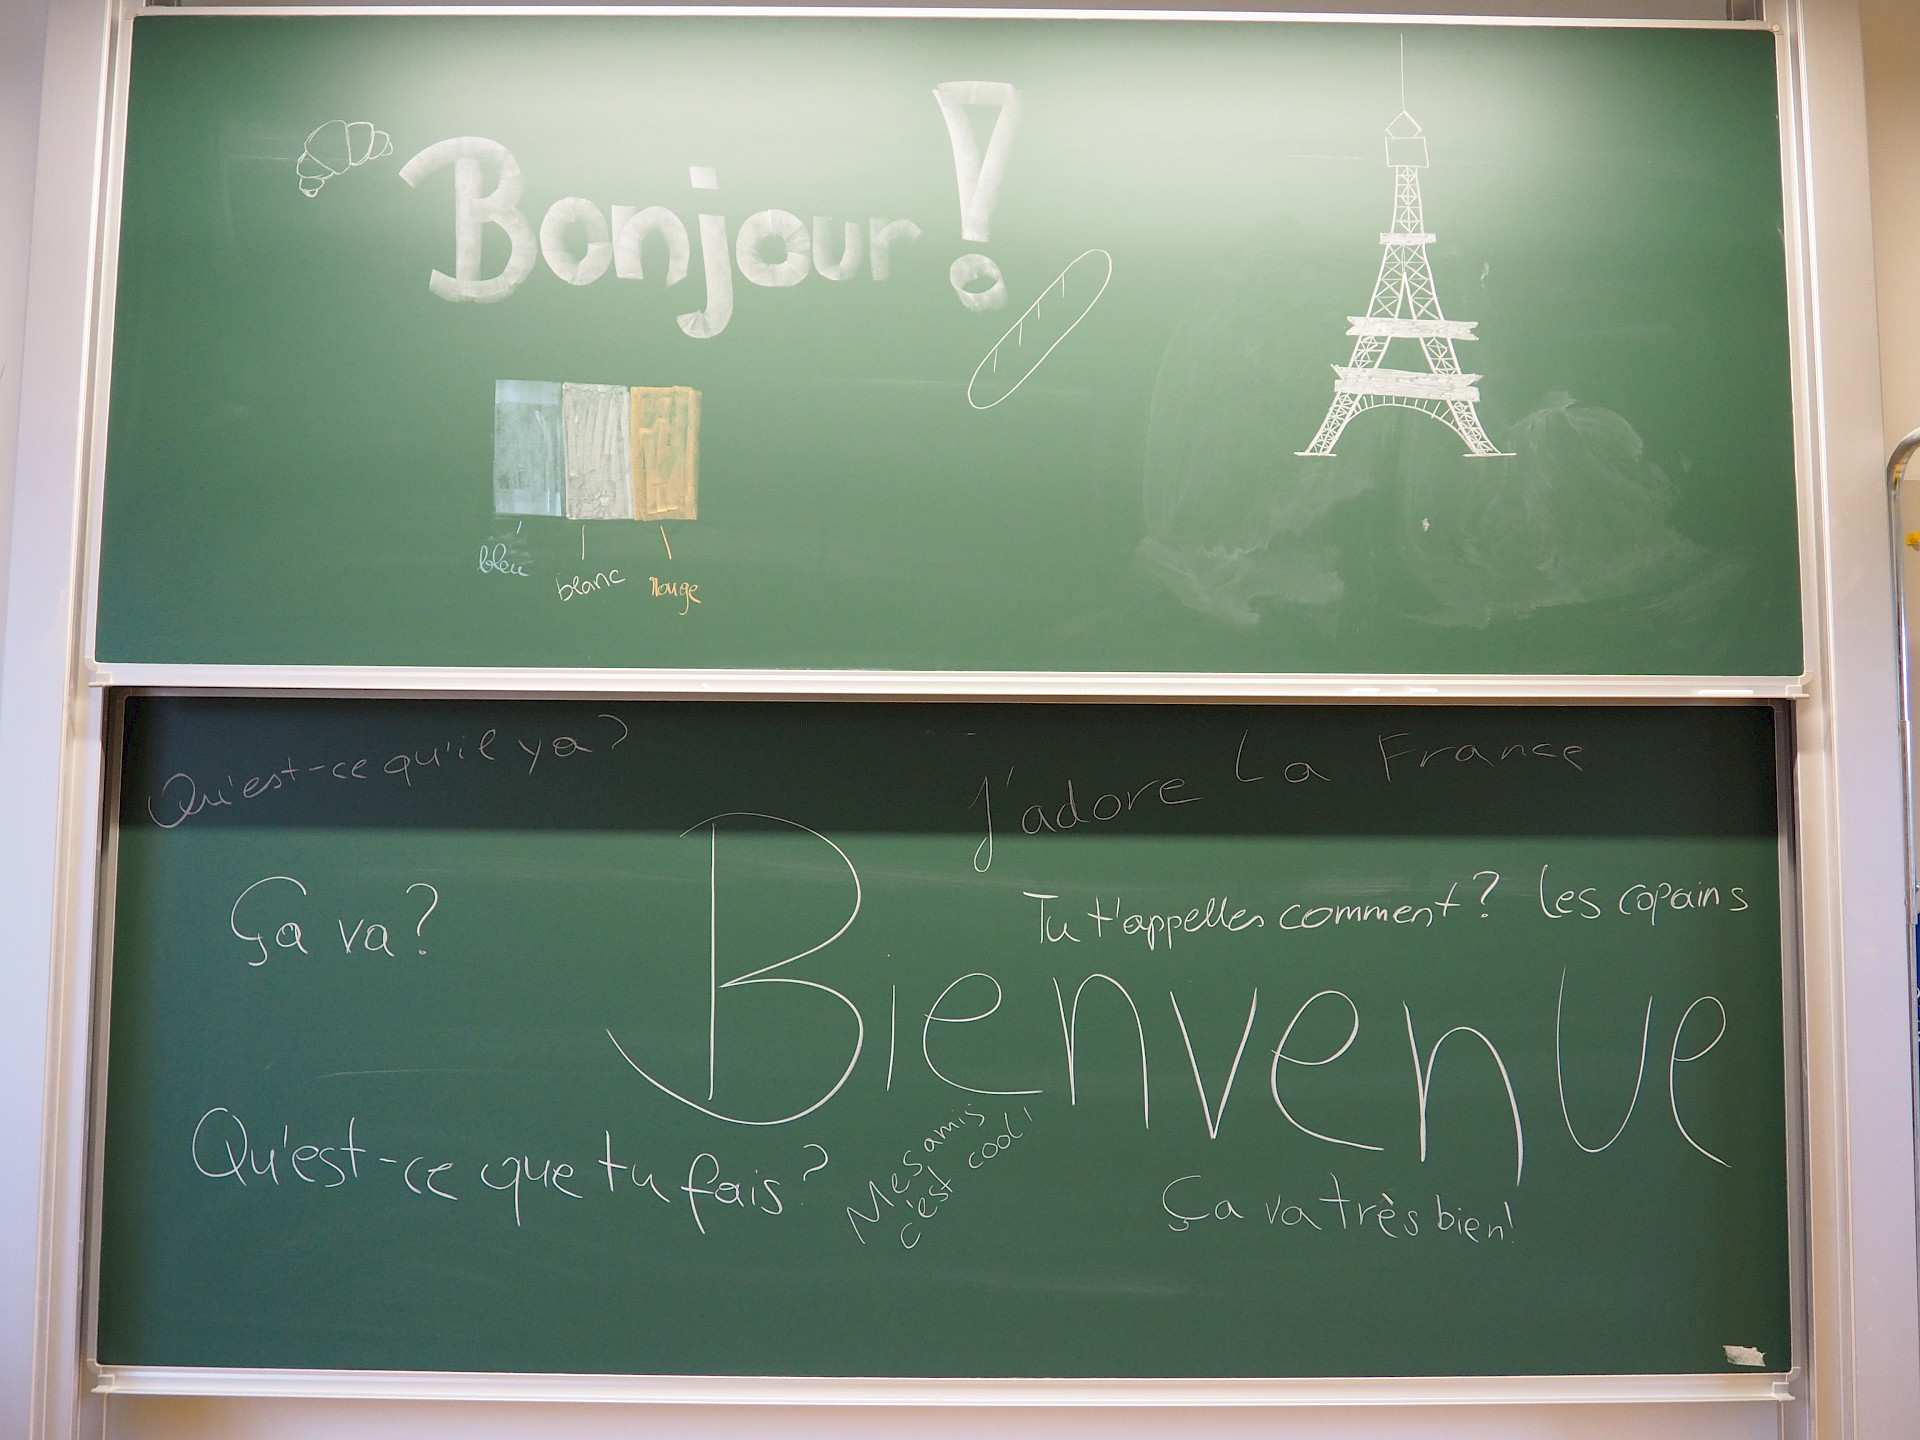 Bonjour!
bleu
blanc
rouge
Qu'est-ce qu'il y a?
J'adore La France
Ça va?
Tu t'appelles comment?
Les copains
Bienvenue
Qu'est-ce que tu fais?
Mes amis
c'est cool!
Ça va très bien!